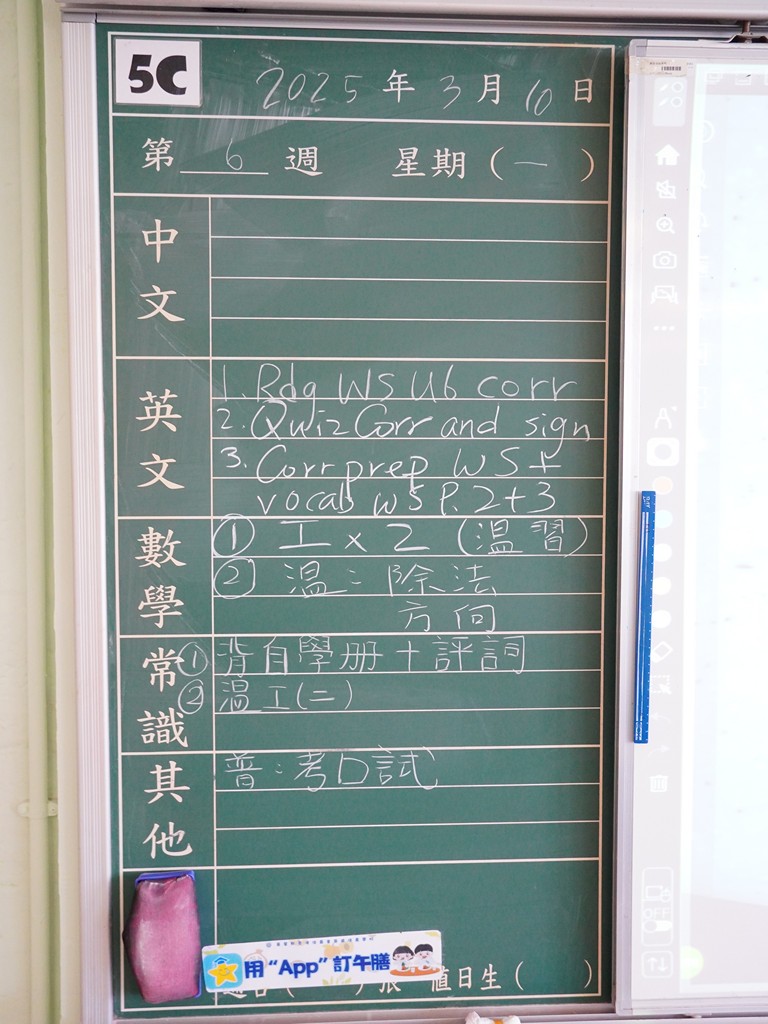 5C
2025年3月10日
第 6 週 星期(一)
中文
英文
1. Rdg WS U6 corr
2. Quiz Corr and sign
3. Corr prep WS +
vocab WS P.2+3
數學
① 工 x 2 (温習)
② 温:除法
方向
常識
① 背自學册+評詞
② 温工(二)
其他
普:考口試
用“App”訂午膳
值日生( )
A
OFF